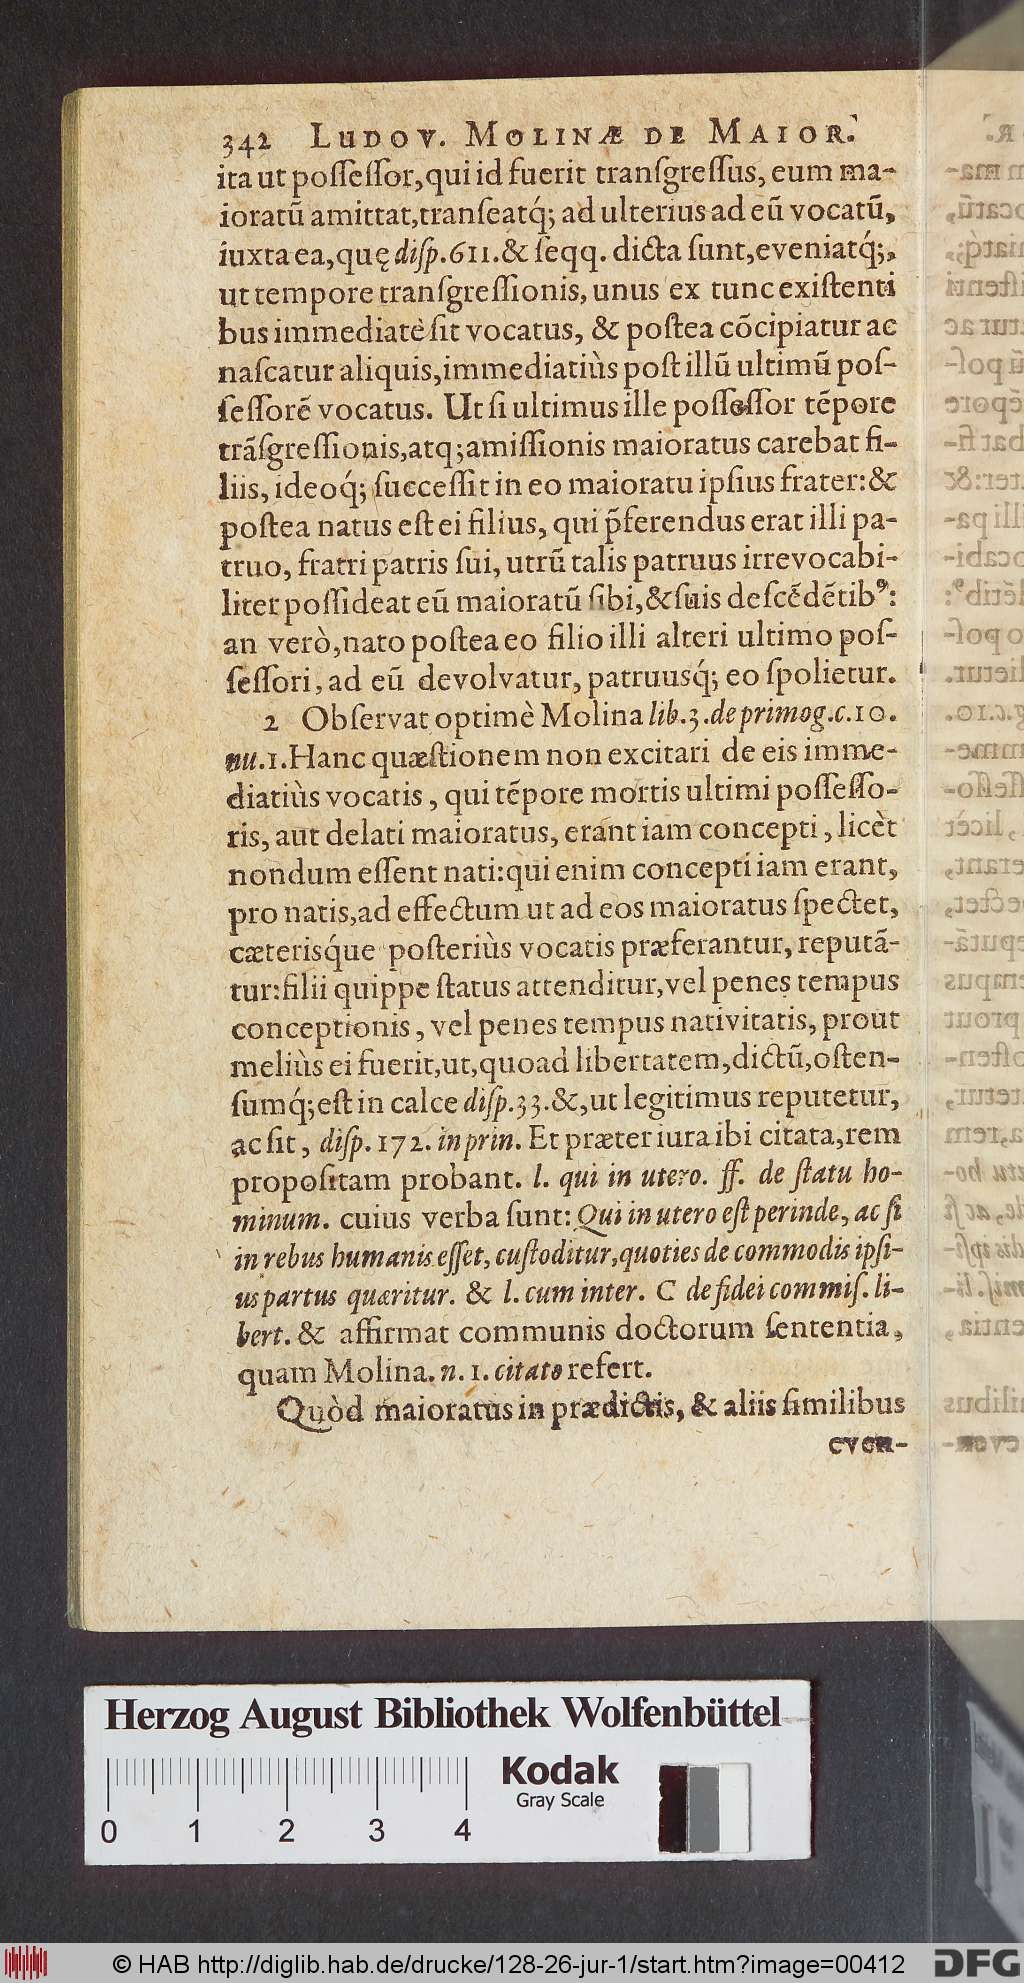 342 LUDOV. MOLINÆ DE MAIOR.
ita ut poſſeſſor, qui id fuerit tranſgreſſus, eum ma-
ioratũ amittat, tranſeatq́; ad ulterius ad eũ vocatũ,
iuxta ea, quę diſp. 611. & ſeqq. dicta ſunt, eveniatq́;,
ut tempore tranſgreſſionis, unus ex tunc exiſtenti
bus immediatè ſit vocatus, & poſtea cõcipiatur ac
naſcatur aliquis, immediatiùs poſt illũ ultimũ poſ-
ſeſſorẽ vocatus. Ut ſi ultimus ille poſſeſſor tẽpore
trãſgreſſionis, atq; amiſſionis maioratus carebat fi-
liis, ideoq́; ſucceſſit in eo maioratu ipſius frater: &
poſtea natus eſt ei filius, qui p̃ferendus erat illi pa-
truo, fratri patris ſui, utrũ talis patruus irrevocabi-
liter poſſideat eũ maioratũ ſibi, & ſuis deſcẽdẽtibꝰ:
an verò, nato poſtea eo filio illi alteri ultimo poſ-
ſeſſori, ad eũ devolvatur, patruusq́; eo ſpolietur.
2 Obſervat optimè Molina lib. 3. de primog. c. 10.
nu. 1. Hanc quæſtionem non excitari de eis imme-
diatiùs vocatis, qui tẽpore mortis ultimi poſſeſſo-
ris, aut delati maioratus, erant iam concepti, licèt
nondum eſſent nati: qui enim concepti iam erant,
pro natis, ad effectum ut ad eos maioratus ſpectet,
cæterisq́ue poſteriùs vocatis præferantur, reputã-
tur: filii quippe ſtatus attenditur, vel penes tempus
conceptionis, vel penes tempus nativitatis, prout
meliùs ei fuerit, ut, quoad libertatem, dictũ, oſten-
ſumq́; eſt in calce diſp. 33. &, ut legitimus reputetur,
ac ſit, diſp. 172. in prin. Et præter iura ibi citata, rem
propoſitam probant. l. qui in utero. ff. de ſtatu ho-
minum. cuius verba ſunt: Qui in utero eſt perinde, ac ſi
in rebus humanis eſſet, cuſtoditur, quoties de commodis ipſi-
us partus quæritur. & l. cum inter. C de fidei commiſ. li-
bert. & affirmat communis doctorum ſententia,
quam Molina. n. 1. citato refert.
Quòd maioratus in prædictis, & aliis ſimilibus
even-
Herzog August Bibliothek Wolfenbüttel
Kodak
Gray Scale
0 1 2 3 4
© HAB http://diglib.hab.de/drucke/128-26-jur-1/start.htm?image=00412
DFG